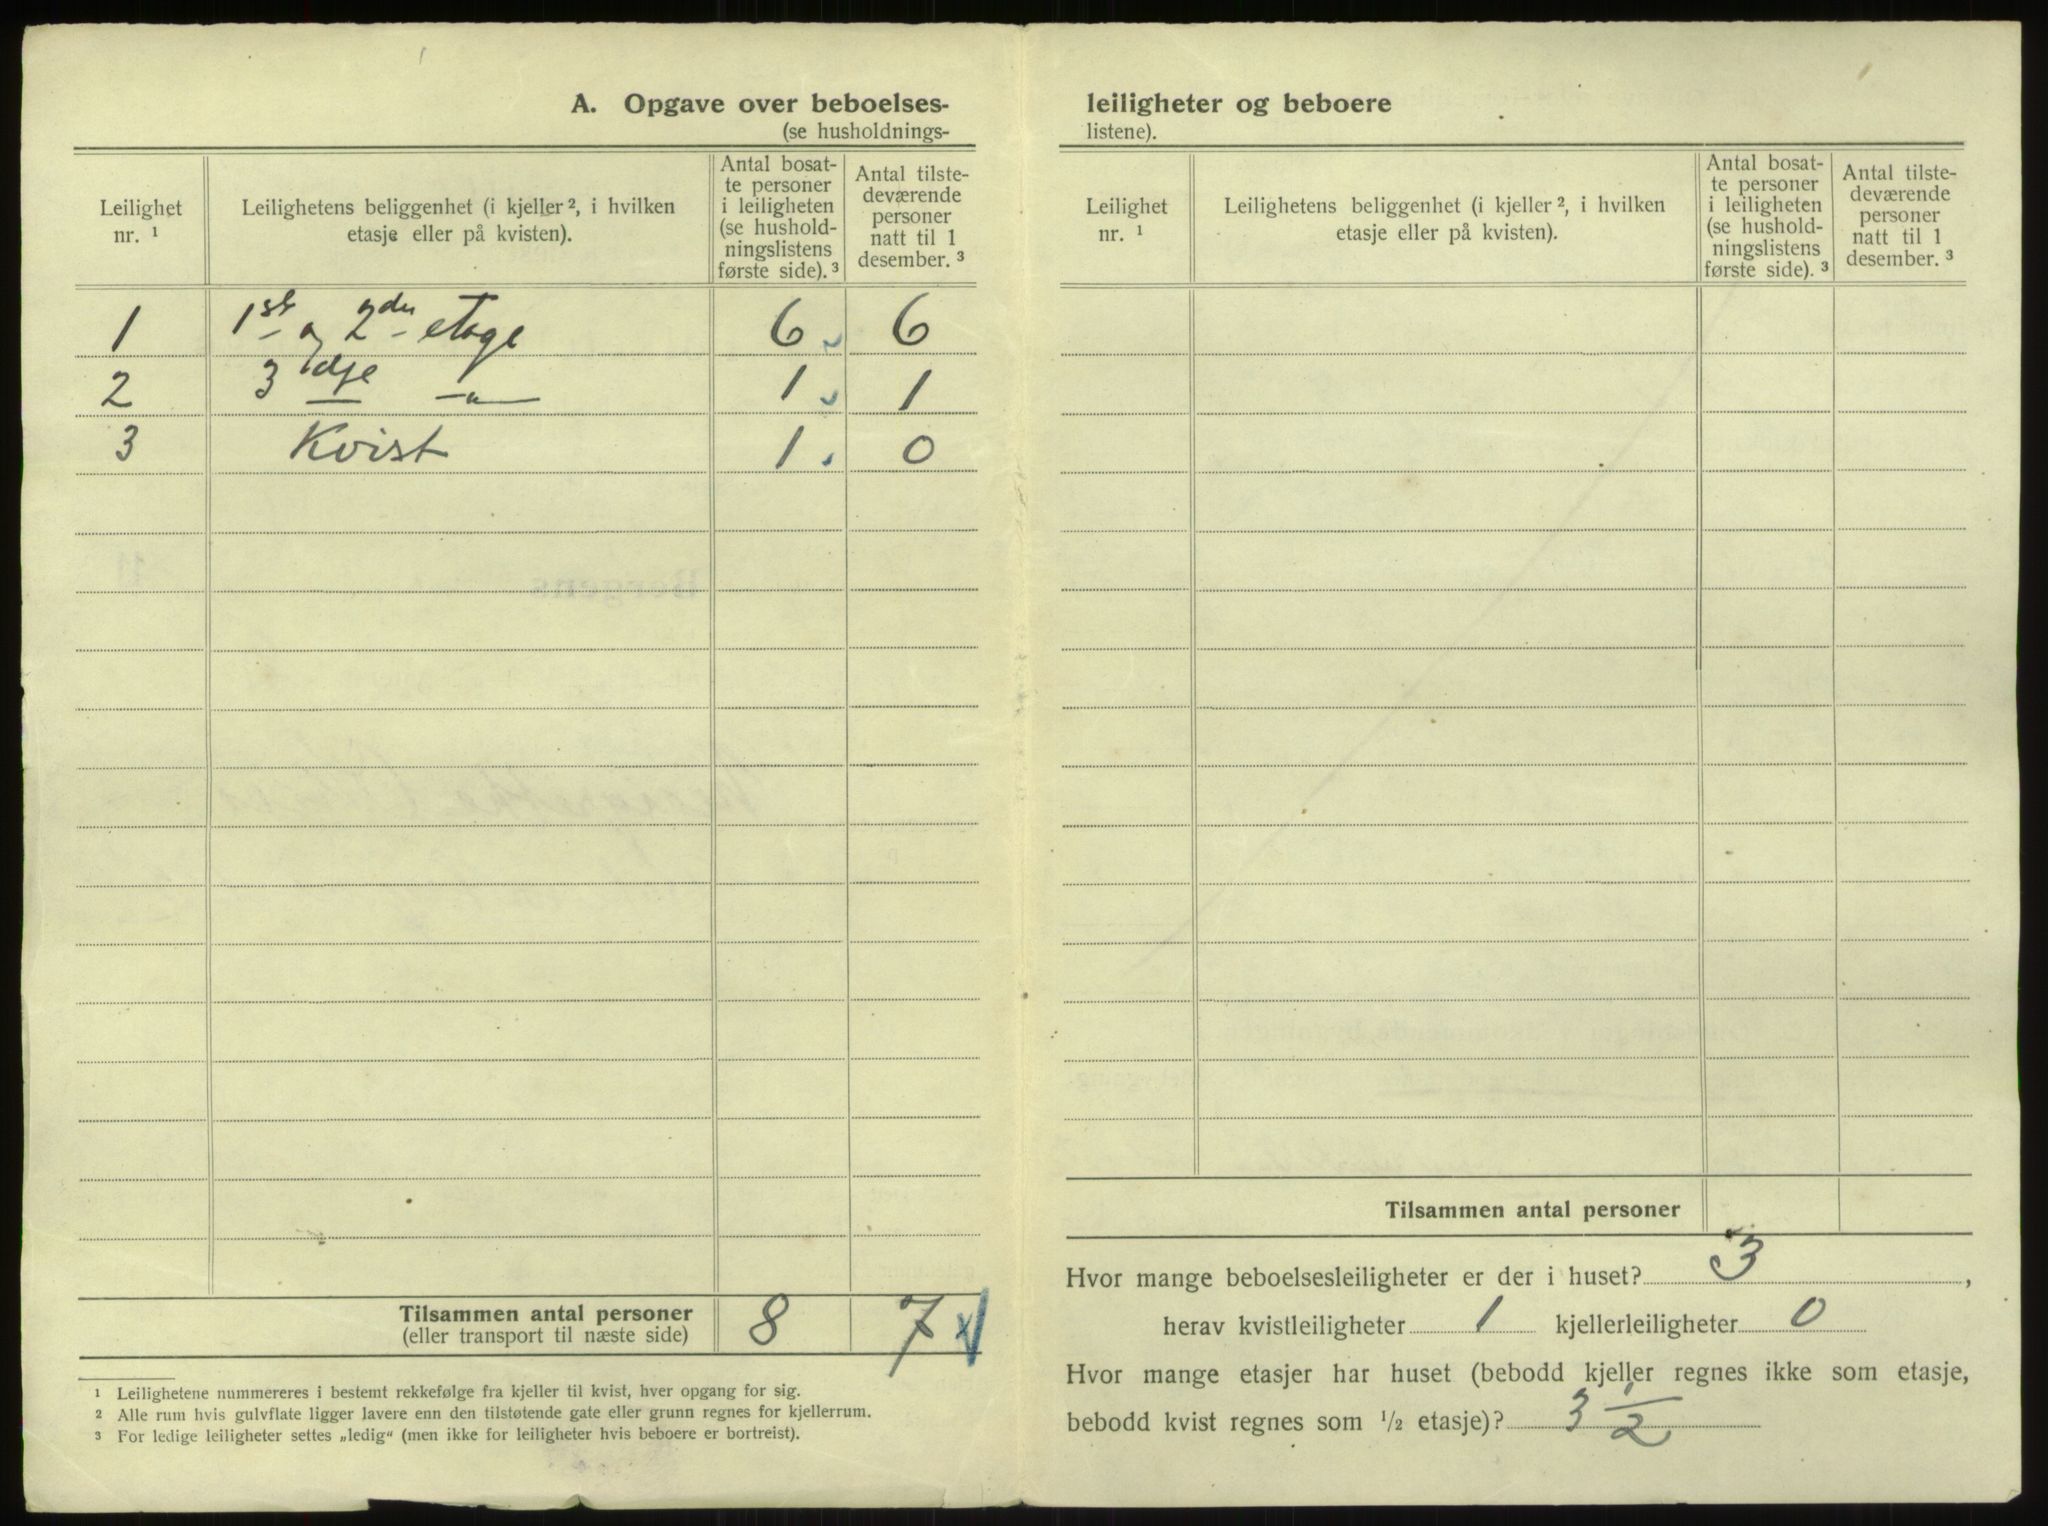 A. Opgave over beboelses-
(se husholdnings-
Leilighet
nr. 1
Leilighetens beliggenhet (i kjeller 2, i hvilken
etasje eller på kvisten).
Antal bosat-
te personer
i leiligheten
(se hushold-
ningslistens
første side). 3
Antal tilste-
deværende
personer
natt til 1
desember. 3
1 1ste og 2den etage 6 6
2 3dje — " — 1 1
3 Kvist 1 0
Tilsammen antal personer 8 7
(eller transport til næste side)
1 Leilighetene nummereres i bestemt rekkefølge fra kjeller til kvist, hver opgang for sig.
2 Alle rum hvis gulvflate ligger lavere enn den tilstøtende gate eller grunn regnes for kjellerrum.
3 For ledige leiligheter settes „ledig“ (men ikke for leiligheter hvis beboere er bortreist).
leiligheter og beboere
listene).
Leilighet
nr. 1
Leilighetens beliggenhet (i kjeller 2, i hvilken
etasje eller på kvisten).
Antal bosat-
te personer
i leiligheten
(se hushold-
ningslistens
første side). 3
Antal tilste-
deværende
personer
natt til 1
desember. 3
Tilsammen antal personer
Hvor mange beboelsesleiligheter er der i huset? 3,
herav kvistleiligheter 1 kjellerleiligheter 0
Hvor mange etasjer har huset (bebodd kjeller regnes ikke som etasje,
bebodd kvist regnes som 1/2 etasje)? 3 1/2